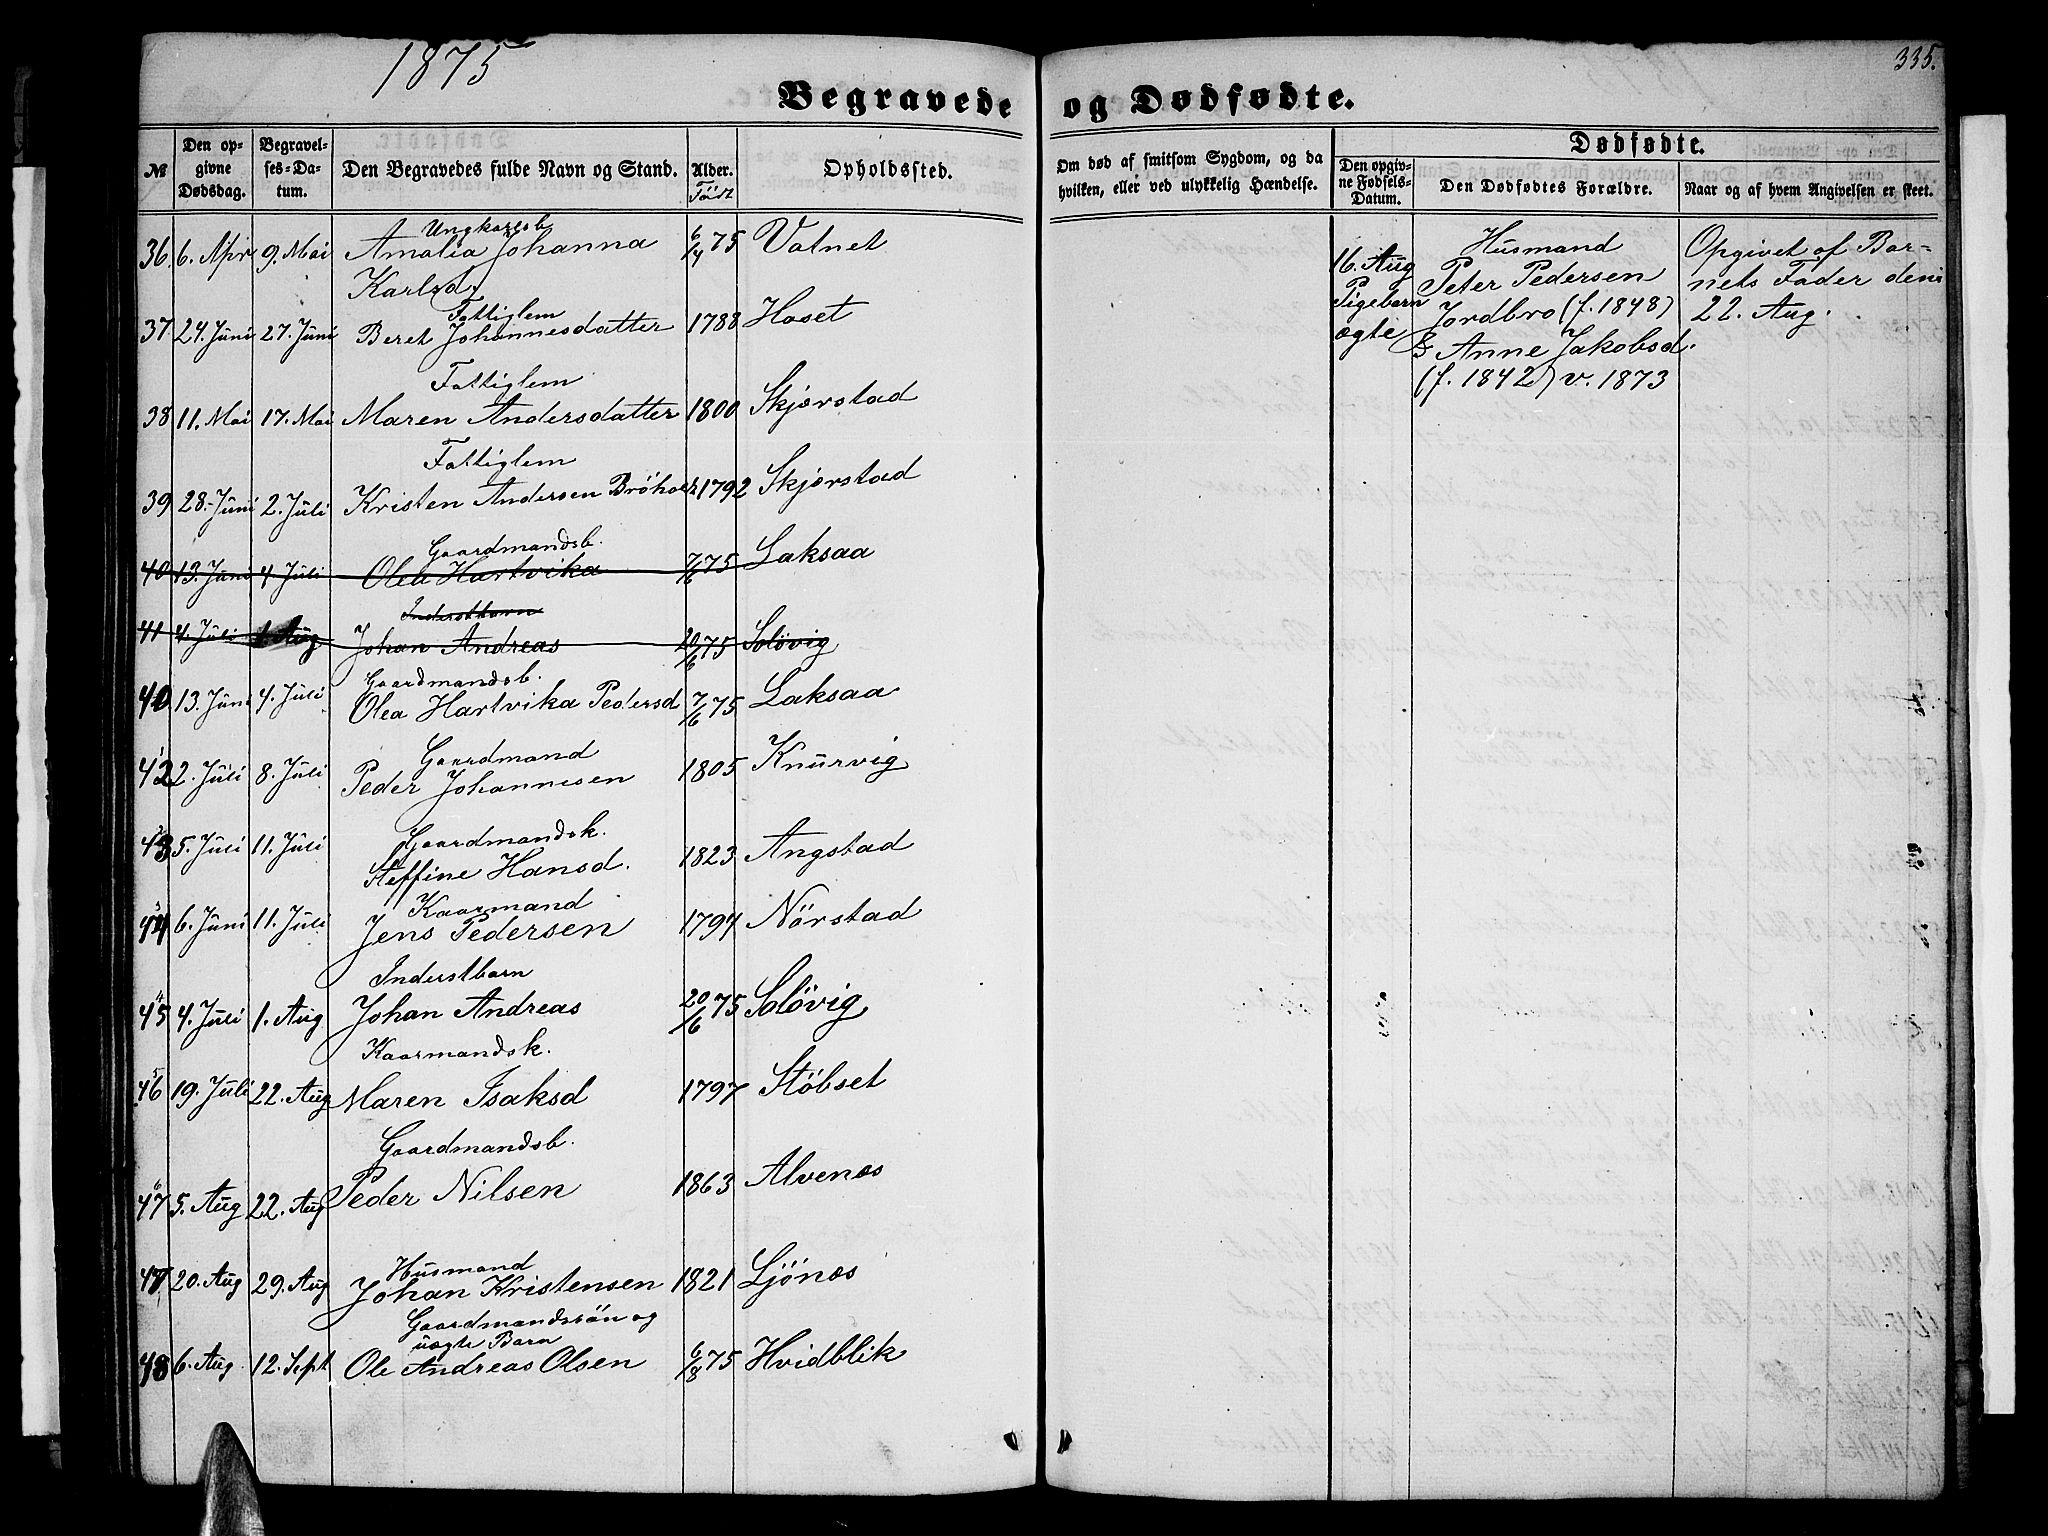 1875
335.
Begravede og Dødfødte.
№ Den opgivne Dødsdag. Begravelses-Datum. Den Begravedes fulde Navn og Stand. Alder. Født Opholdssted. Om død af smitsom Sygdom, og da hvilken, eller ved ulykkelig Hændelse. Dødfødte.
Den opgivne Fødsels-Datum. Den Dødfødtes Forældre. Naar og af hvem Angivelsen er skeet.
Ungkarlsb
36. 6. Apr 9. Mai Amalia Johanna 6/4 75 Vatnet
Karlsd.
Fattiglem
37. 24. Juni 27. Juni Beret Johannesdatter 1788 Hoset
Fattiglem
38 11. Mai 17. Mai Maren Andersdatter 1800 Skjerstad
Fattiglem
39 28. Juni 2. Juli Kristen Andersen 1792 Skjerstad
Gaardmandsb.
40 13. Juni 4 Juli Olea Hartvika 7/6 75 Laksaa
Inderstbarn
41 4. Juli 1. Aug Johan Andreas 20/6 75 Soløvig
Gaardmandsb.
40 13. Juni 4. Juli Olea Hartvika Pedersd 7/6 75 Laksaa
Gaardmand
42 2. Juli 8. Juli Peder Johannesen 1805 Knurvig
Gaardmandsk.
43 5. Juli 11. Juli Steffine Hansd. 1823 Angstad
Kaarmand
44 6. Juni 11. Juli Jens Pedersen 1794 Nörstad
Inderstbarn
45 4. Juli 1. Aug Johan Andreas 20/6 75 Solövig
Kaarmandsk.
46 19. Juli 22. Aug Maren Isaksd 1797 Stöbset
Gaardmandsb.
47 5. Aug 22. Aug Peder Nilsen 1863 Alvenes
Husmand
47 20. Aug 29. Aug Johan Kristensen 1821 Ljönes
Gaardmandssön og
uægte Barn
48 6. Aug. 12. Sept Ole Andreas Olsen 6/8 75 Hvidblik
16. Aug
Pigebarn
ægte
Husmand
Peter Pedersen
Jordbro (f. 1848)
& Anne Jakobsd.
(f. 1842) v. 1873
Opgivet af Bar-
nets Fader den
22. Aug.